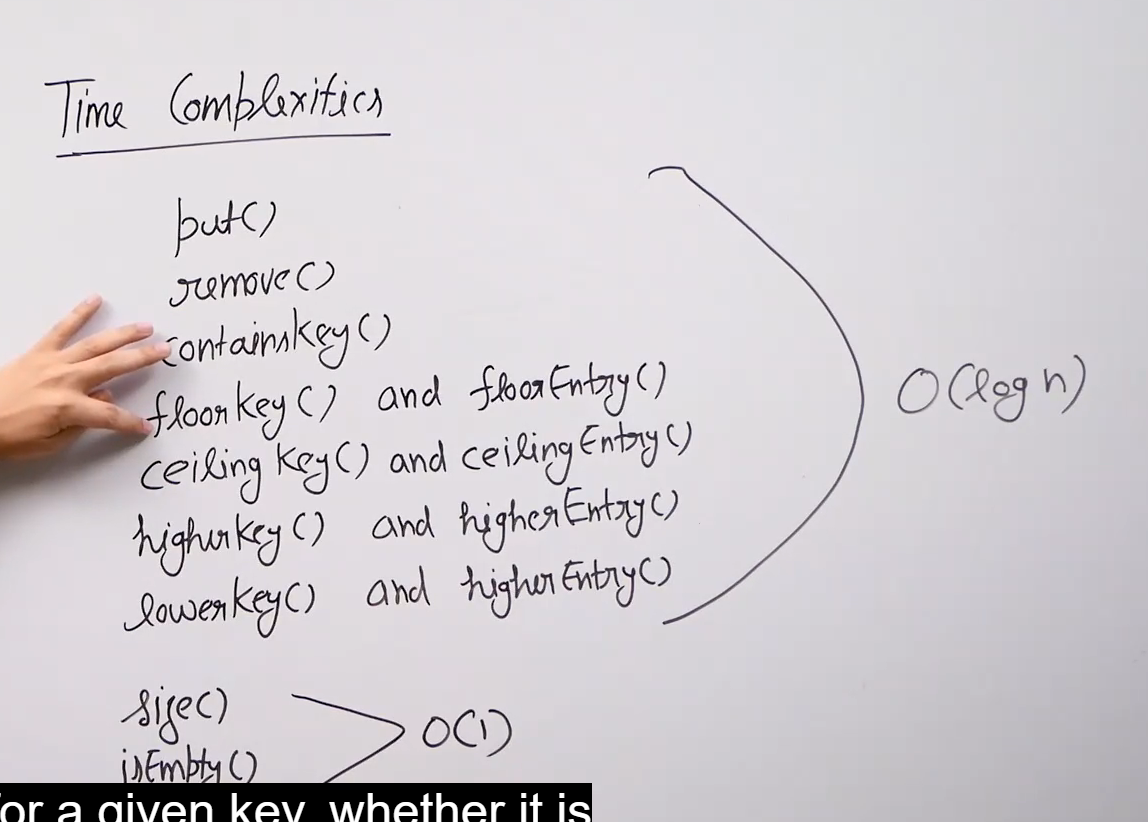 Time Complexities
put()
remove()
containsKey()
floorKey() and floorEntry()
ceilingKey() and ceilingEntry()
higherKey() and higherEntry()
lowerKey() and higherEntry()
O(log n)
size()
isEmpty()
O(1)
for a given key, whether it is